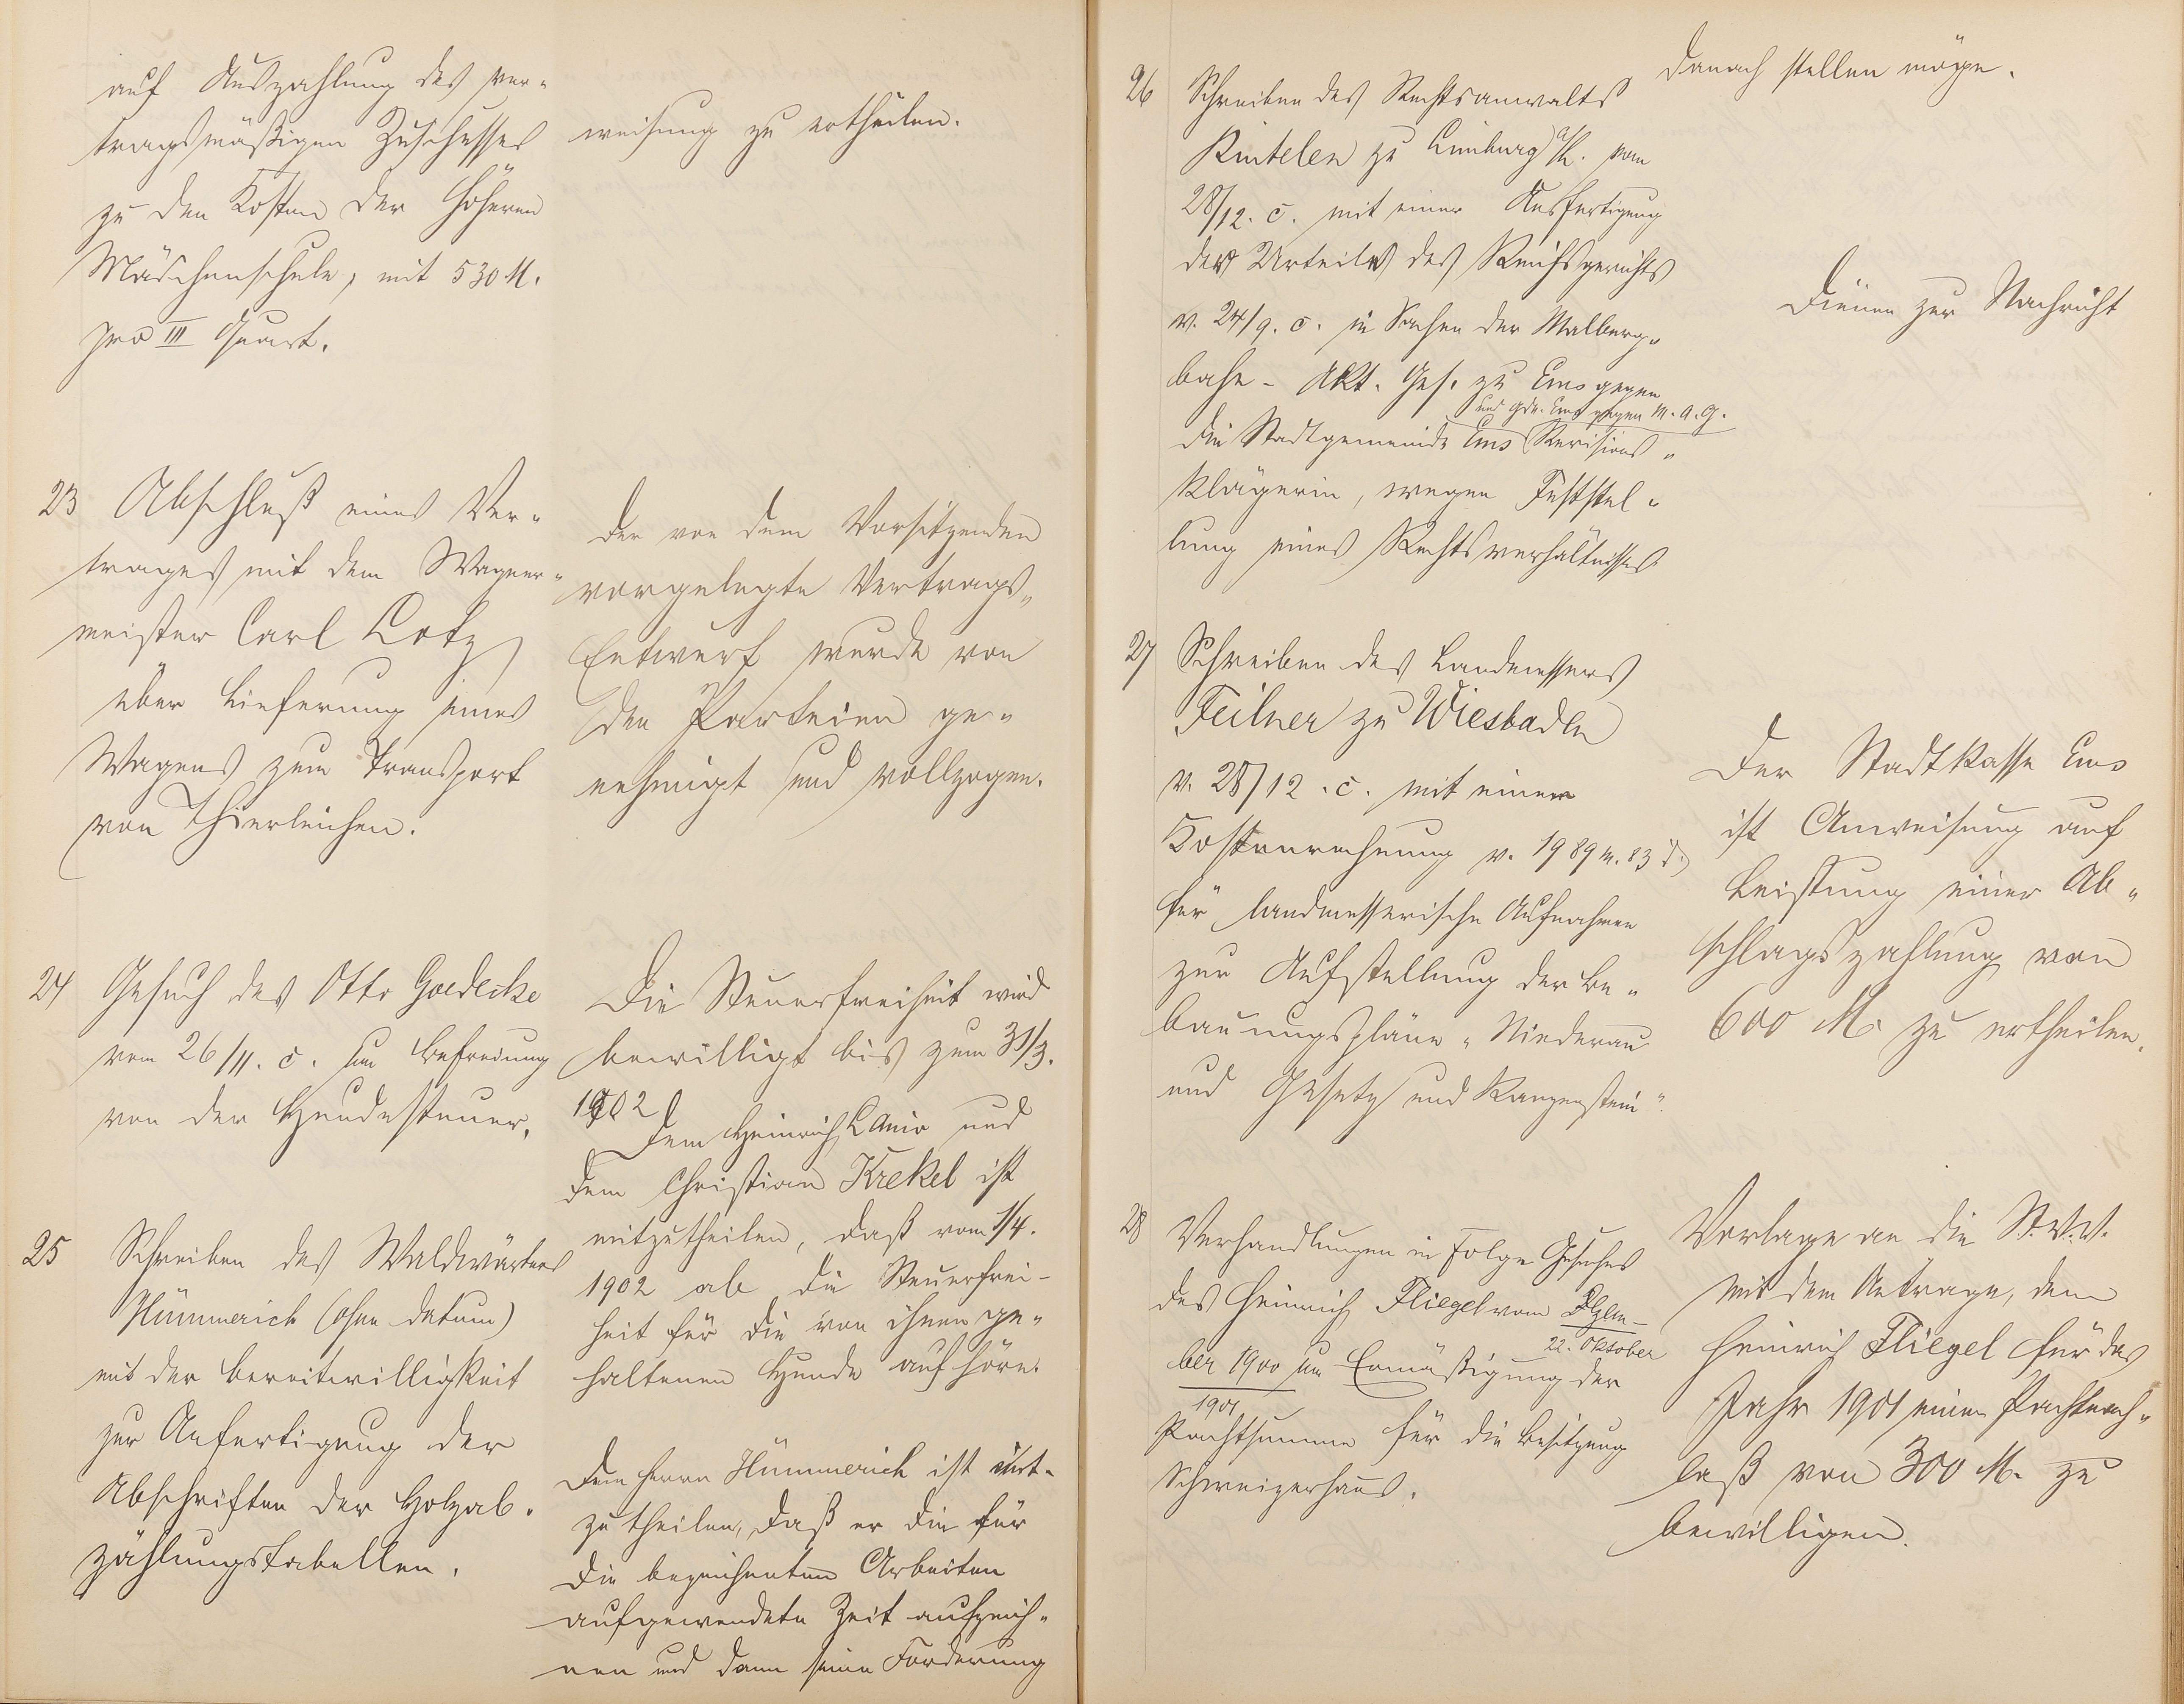 auf Auszahlung des ver-
tragsmäßigen Zuschusses
zu den Kosten der höheren
Mädchenschule, mit 530 M.
pro III Quart.
weisung zu ertheilen.
23 Abschluß eines Ver-
trages mit dem Wagner-
meister Carl Lotz
über Lieferung eines
Wagens zum Transport
von Thierleichen.
Der von dem Vorsitzenden
vorgelegte Vertrags-
Entwurf wurde von
den Parteien ge-
nehmigt und vollzogen.
24 Gesuch des Otto Goedecke
vom 26/11. c. um Befreiung
von der Hundesteuer.
Die Steuerfreiheit wird
bewilligt bis zum 31/3.
1902
Dem Heinrich Canio und
dem Christian Krekel ist
mitzutheilen, daß vom 1/4.
1902 ab die Steuerfrei-
heit für die von ihnen ge-
haltenen Hunde aufhöre.
25 Schreiben des Waldwärters
Hümmerich (ohne Datum)
mit der Bereitwilligkeit
zur Anfertigung der
Abschriften der Holzab-
zählungstabellen.
Dem Herrn Hümmerich ist mit-
zutheilen, daß er die für
die bezeichneten Arbeiten
aufgewendete Zeit aufzeich-
nen und dann seine Forderung
danach stellen möge.
26 Schreiben des Rechtsanwalts
Rintelen zu Limburg a/L. vom
28/12. c. mit einer Ausfertigung
des Urteils des Reichsgerichts
v. 24/9. c. in Sachen der Malberg-
bahn - Akt. Ges. zu Ems gegen
und Gde. Ems gegen M. A. G.
die Stadtgemeinde Ems Revisions-
klägerin, wegen Feststel-
lung eines Rechtsverhältnisses
Dienen zur Nachricht
27 Schreiben des Landmessers
Feilner zu Wiesbaden
v. 28/12. c. mit einer
Kostenrechnung v. 1989 M. 83 d.
für landmesserische Aufnahmen
zur Aufstellung der Be-
bauungspläne „Niederau
und Gesetz und Kanzenstein“.
Der Stadtkasse Ems
ist Anweisung auf
Leistung einer Ab-
schlagszahlung von
600 M. zu ertheilen.
28 Verhandlungen in Folge Gesuches
des Heinrich Fliegel vom Dezem-
22. Oktober
ber 1900 um Ermäßigung der
1901
Pachtsumme für die Besitzung
Schweizerhaus.
Vorlage an die St. V. V.
mit dem Antrage, dem
Heinrich Fliegel für das
Jahr 1901 einen Pachtnach-
laß von 300 M. zu
bewilligen.